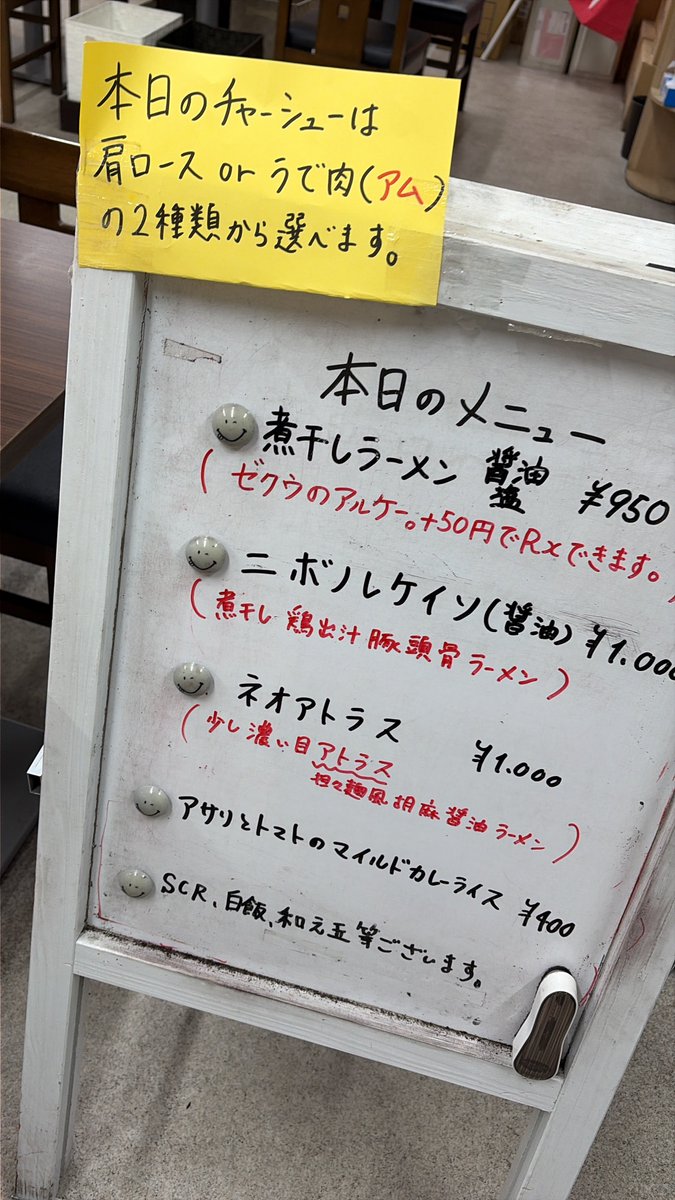 本日のチャーシューは
肩ロース or うで肉(アム)
の2種類から選べます。
本日のメニュー
煮干しラーメン 醤油 塩 ¥950
(ゼクウのアルケー。+50円でRxできます。)
ニボノレケイソ(醤油) ¥1.000
(煮干し 鶏出汁 豚頭骨 ラーメン)
ネオアトラス ¥1.000
(少し濃い目アトラス
担々麺風 胡麻醤油ラーメン)
アサリとトマトのマイルドカレーライス ¥400
SCR、白飯、和え玉等ございます。